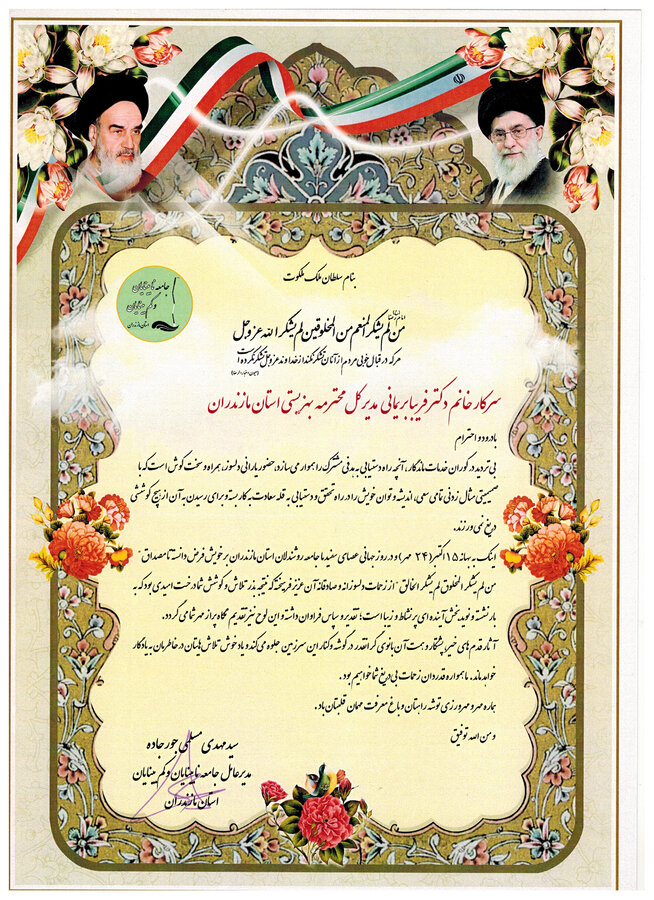 بنام سلطان ملک ملکوت
جامعه نابینایان
و کم بینایان
استان مازندران
امام رضا
من لم یشکر المنعم من المخلوقین لم یشکر الله عز و جل
هر که در قبال خوبی مردم از آنان تشکر نکند از خداوند عز و جل تشکر نکرده است
سرکار خانم دکتر فریبا بریمانی مدیر کل محترمه بهزیستی استان مازندران
با درود و احترام
بی تردید در کوران خدمات ماندگار، آنچه راه دستیابی به هدفی مشترک را هموار می سازد، حضور یارانی دلسوز، همراه و سخت کوش است که با
صمیمیتی مثال زدنی تمامی سعی، اندیشه و توان خویش را در راه تحقق و دستیابی به قله سعادت به کار بسته و برای رسیدن به آن از هیچ کوششی
دریغ نمی ورزند.
اینک به بهانه ۱۵ اکتبر (۲۴ مهر) و در روز جهانی عصای سفید ما جامعه روشندلان استان مازندران بر خویش فرض دانسته تا مصداق "
من لم یشکر المخلوق لم یشکر الخالق" از زحمات دلسوزانه و صادقانه آن عزیز فریخته که نتیجه بذر تلاش و کوشش شما درخت امیدی بود که به
بار نشسته و نوید بخش آینده ای پر نشاط و زیبا است؛ تقدیر و سپاس فراوان داشته و این لوح نیز تقدیم نگاه پر از مهر شما می گردد.
آثار قدم های خیر، پشتکار و همت آن بانوی گرانقدر، در گوشه و کنار این سرزمین جلوه می کند و یاد خوش تلاش هایتان در خاطرمان به یادگار
خواهد ماند. ما همواره قدردان زحمات بی دریغ شما خواهیم بود.
هماره مهر و مهرورزی توشه راهتان و باغ معرفت مهمان قلبتان باد.
و من الله توفیق
سید مهدی مسلمی جورجاده
مدیر عامل جامعه نابینایان و کم بینایان
استان مازندران